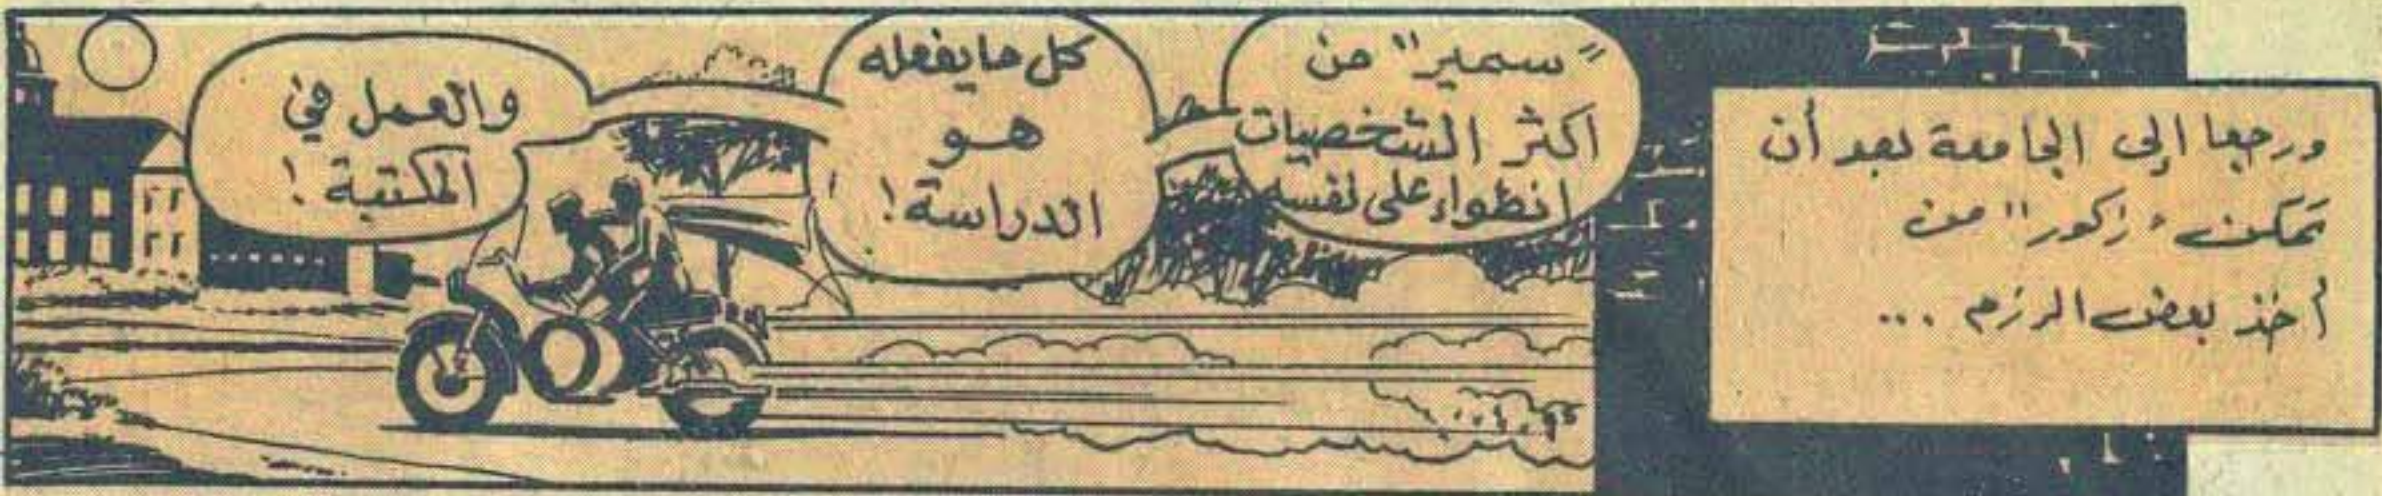 ورجعا إلى الجامعة بعد أن
تمكن "زكور" من
أخذ بعض الرزم ...
"سمير" من
أكثر الشخصيات
انطواء على نفسه
كل ما يفعله
هو
الدراسة !
والعمل في
المكتبة !